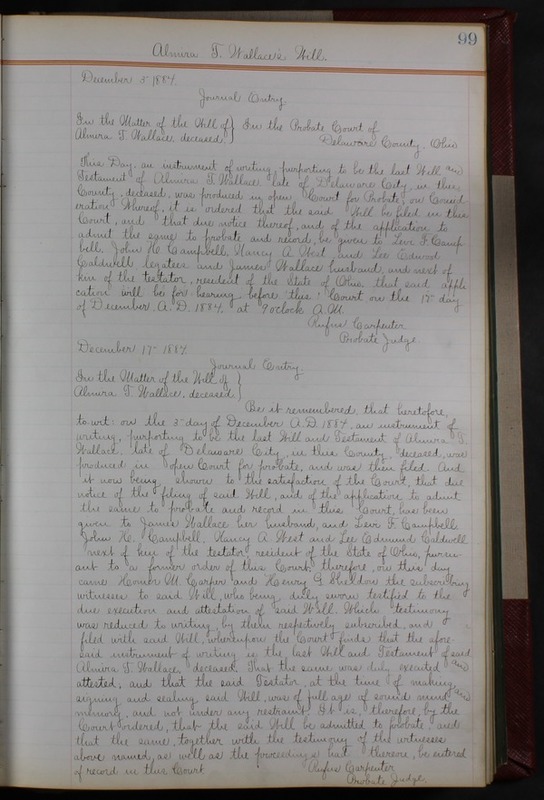 99
Almira T. Wallace's Will.
December 3 1884.
Journal Entry.
In the Matter of the Will of } In the Probate Court of
Almira T. Wallace, deceased. } Delaware County, Ohio
This Day, an instrument of writing purporting to be the last Will and
Testament of Almira T. Wallace late of Delaware City, in this
County, deceased, was produced in open Court for Probate, on Consid
eration Whereof, it is ordered that the said Will be filed in this
Court, and that due notice thereof, and of the application to
admit the same to probate and record, be given to Levi F. Camp
bell, John H. Campbell, Nancy A West and Lee Edwood
Caldwell legatees and James Wallace husband, and next of
kin of the testator, resident of the State of Ohio, that said appli
cation will be for hearing before this Court on the 17 day
of December, A.D. 1884, at 9 oclock A.M.
Rufus Carpenter
Probate Judge
December 17 1884
Journal Entry.
In the Matter of the Will of }
Almira T. Wallace, deceased. }
Be it remembered, that heretofore,
to-wit: on the 3 day of December A.D. 1884, an instrument of
writing, purporting to be the last Will and Testament of Almira T.
Wallace, late of Delaware City, in this County, deceased, was
produced in open Court for probate, and was then filed. And
it now being shown to the satisfaction of the Court, that due
notice of the filing of said Will, and of the application to admit
the same to probate and record in this Court, has been
given to James Wallace her husband, and Levi F. Campbell
John H. Campbell. Nancy A West and Lee Edmund Caldwell
next of kin of the testator, resident of the State of Ohio, pursu-
ant to a former order of this Court, therefore, on this day
came Homer M Carper and Henry G Sheldon the subscribing
witnesses to said Will, who being duly sworn testified to the
due execution and attestation of said Will. Which testimony
was reduced to writing, by them respectively subscribed, and
filed with said Will, whereupon the Court finds that the afore-
said instrument of writing is the last Will and Testament of said
Almira T. Wallace, deceased. That the same was duly executed and
attested; and that the said Testator, at the time of making,
signing and sealing, said Will, was of full age, of sound mind and
memory, and not under any restraint. It is, therefore, by the
Court ordered, that the said Will be admitted to probate, and
that the same, together with the testimony of the witnesses
above named, as well as the proceedings had thereon, be entered
of record in this Court Rufus Carpenter
Probate Judge.